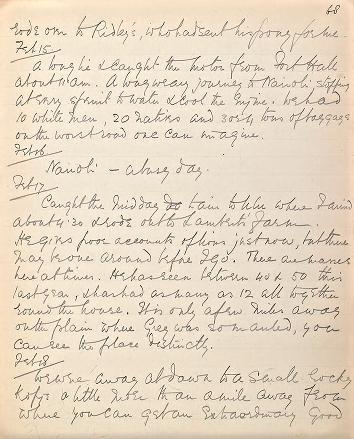 68
rode on to Ridley's, who had sent his pony for me.
Feb 15
A boy & I caught the motor from Fort Hall
about 11 am. A long weary journey to Nairobi stopping
at every spruit to water & cool the Engine. We had
10 white men, 20 natives and 30 tons of baggage
on the worst road one can imagine.
Feb 16
Nairobi — a busy day.
Feb 17
Caught the midday train to Ulu where I arrived
about 4.30 & rode out to Lambert's farm.
He gives poor accounts of lions just now, but there
may be one around before I go. There are many
here at times. He has seen between 40 & 50 this
last year, & has had as many as 12 all together
round the house. It is only a few miles away
on the plain where Grey was so mauled, you
can see the place distinctly.
Feb 18
We were away at dawn to a small rocky
Kopje a little more than a mile away from
where you can get an Extraordinary Good